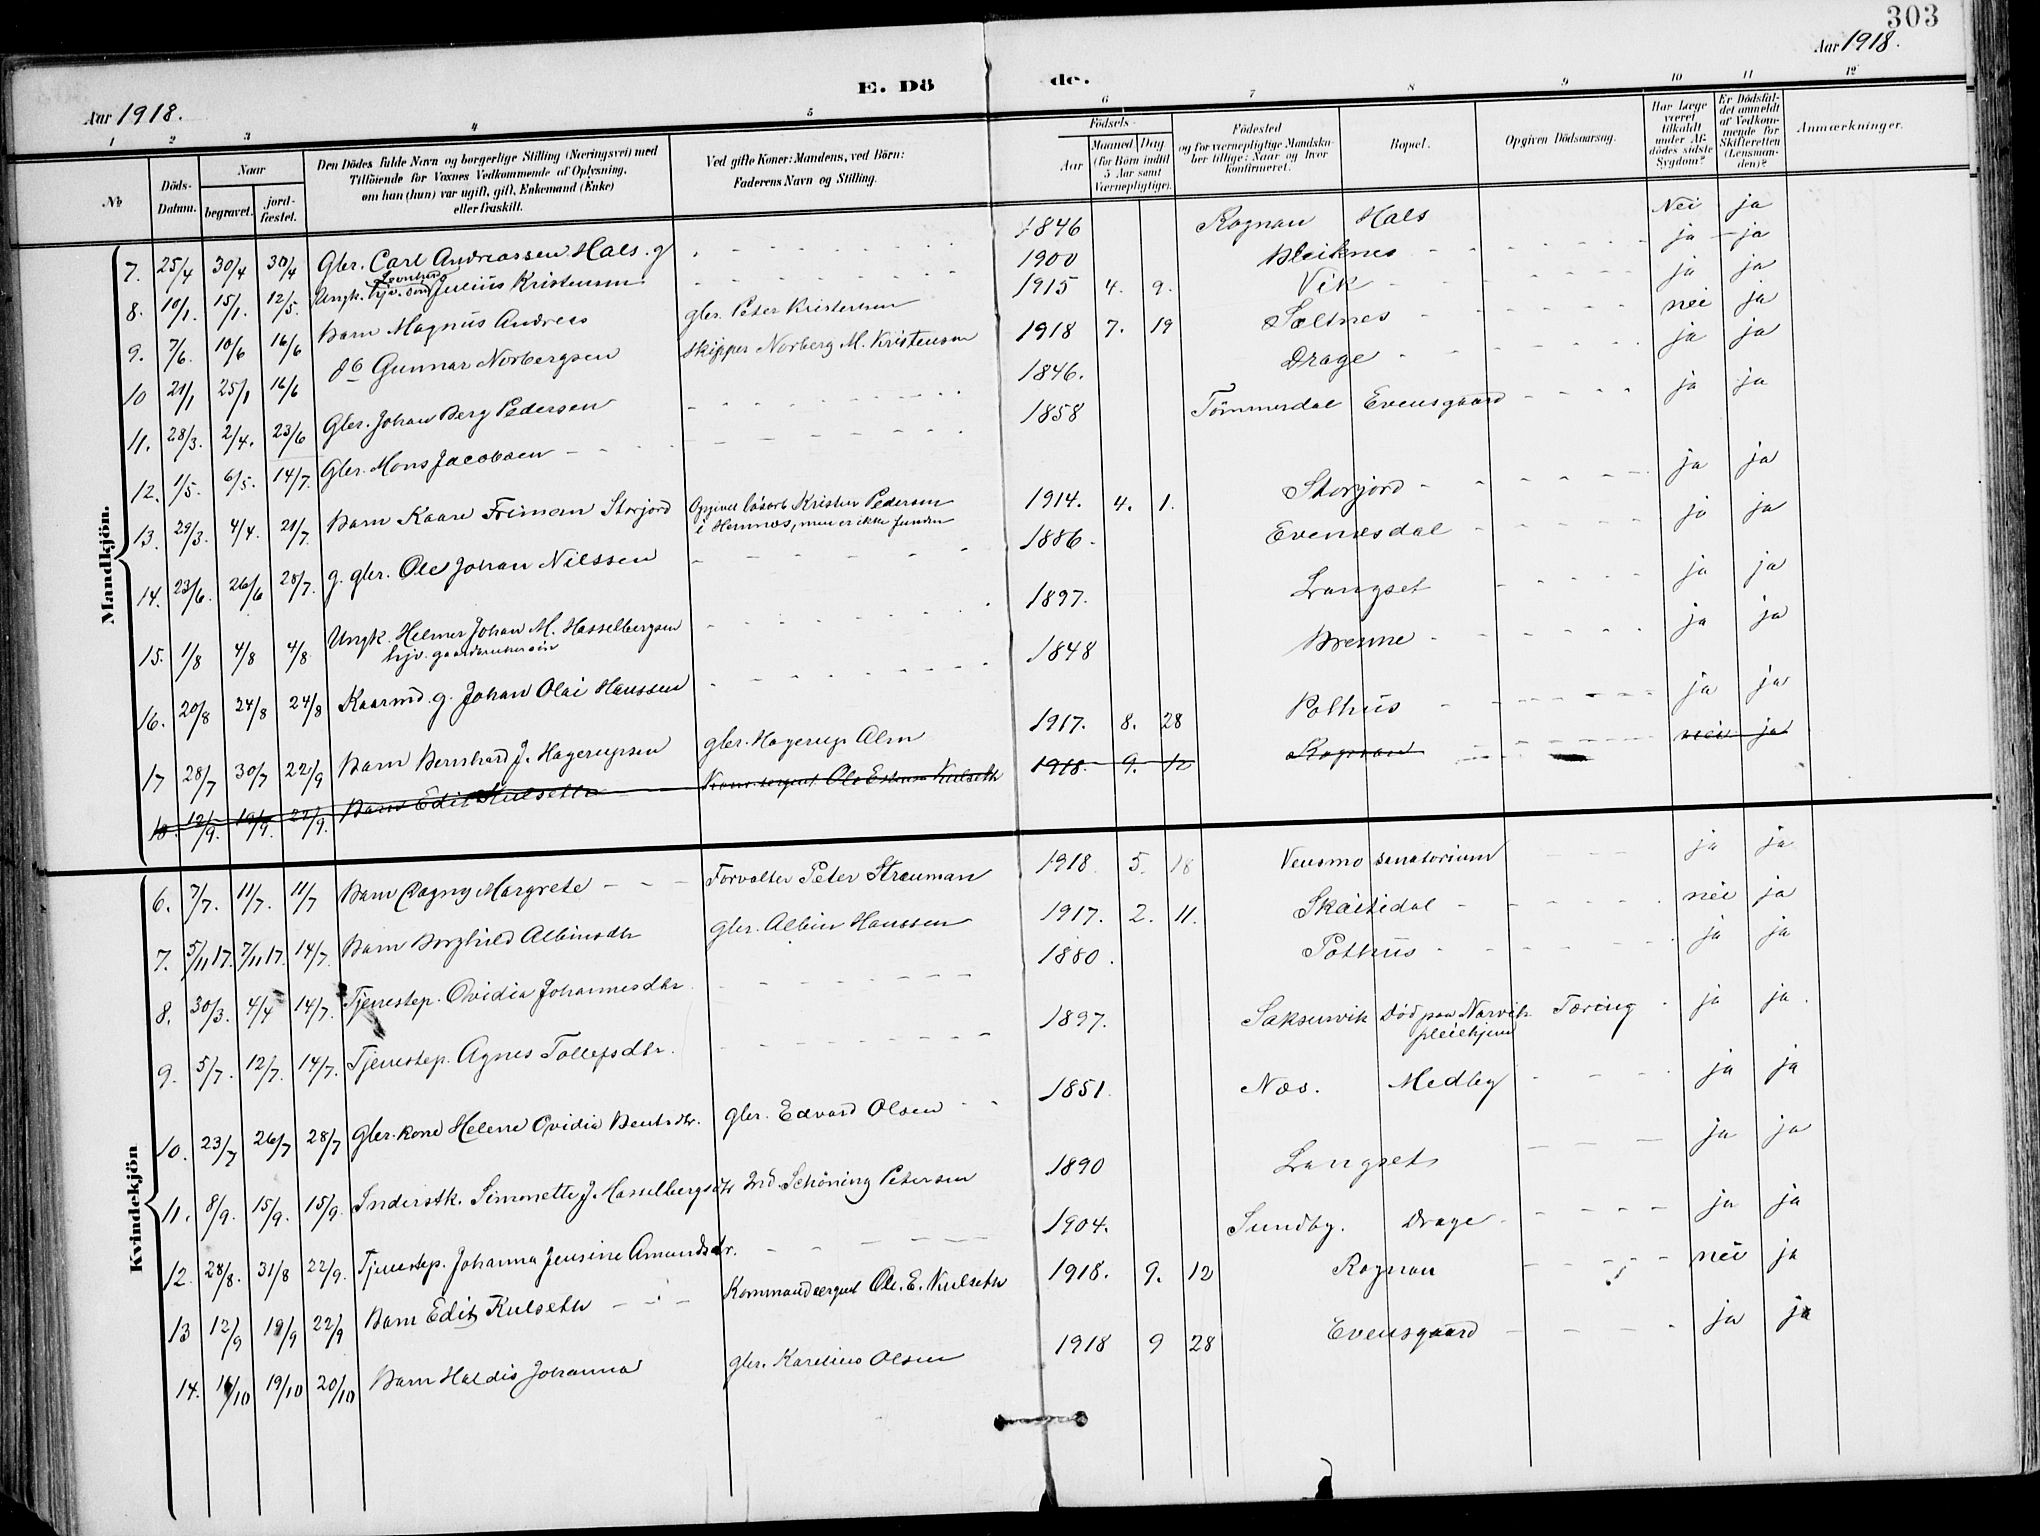 303
Aar 1918.
Aar 1918.
E. Dö de.
1 2 3 4 5 6 7 8 9 10 11 12
№
Döds-Datum.
Naar
begravet.
jord-fæstet.
Den Dödes fulde Navn og borgerlige Stilling (Næringsvei) med
Tilföiende for Voxnes Vedkommende af Oplysning,
om han (hun) var ugift, gift, Enkemand (Enke)
eller fraskilt.
Ved gifte Koner: Mandens, ved Börn:
Faderens Navn og Stilling.
Födsels-
Aar
Maaned Dag
(for Börn indtil
5 Aar samt
Værnepligtige).
Födested
og for værnepligtige Mandska-
ber tillige: Naar og hvor
konfirmeret.
Bopæl.
Opgiven Dödsaarsag.
Har Læge
været
tilkaldt
under Af-
dödes sidste
Sygdom?
Er Dödsfal-
det anmeldt
af Vedkom-
mende for
Skifteretten
(Lensman-
den)?
Anmærkninger.
Mandkjön.
7. 25/4 30/4 30/4 Gbr. Carl Andreassen Hals. g 1846 Rognan Hals Nei ja
8. 10/1. 15/1. 12/5. Ungk. hjv. søn Julius Kristensen 1900 Bleiknes ja ja
9. 7/6. 10/6 16/6 Barn Magnus Andreas gbr. Peter Kristensen 1915 4. 9. Vik ja ja
10 21/1 25/1 16/6 do Gunnar Norbergsen Skipper Norberg M. Kristensen 1918 7. 19 Saltnes nei ja
11. 28/3. 2/4. 23/6 Gbr. Johan Berg Pedersen 1846. Drage ja ja
12. 1/5. 6/5. 14/7. Gbr. Mons Jacobsen 1858 Tömmerdal Evensgaard ja ja
13. 29/3. 4/4. 21/7. Barn Kaare Friman Storjord Opgivet løsarb Kristen Pedersen
i Hemnes, men er ikke funden 1914. 4. 1. Storjord ja ja
14. 23/6. 26/6 28/7. g. gbr. Ole Johan Nilssen 1886. Evenesdal ja ja
15. 1/8 4/8 4/8 Ungk. Helmer Johan M. Hasselbergsen
hjv. gaardbrukersøn 1897. Langset ja ja
16. 20/8 24/8 24/8 Kaarmd. g. Johan Olai Hanssen 1848 Brenne ja ja
17 28/7 30/7 22/9 Barn Bernhard J. Hagerupsen gbr. Hagerup Alm 1917. 8. 28 Pothus ja ja
18. 12/9. 19/9. 22/9. Barn Edit Kulseth Komm. sergeant Ole Kulseth 1918. 9. 12 Rognan nei ja
Kvindekjön
6. 7/7. 11/7. 11/7 Barn Ragny Margrete Forvalter Peter Strauman 1918. 5. 18 Vensmo sanatorium ja ja
7. 5/11 17. 7/11 17. 14/7. Barn Borghild Albinsdtr gbr. Albin Hanssen 1917. 2. 11. Skaitidal nei ja
8. 30/3. 4/4 14/7. Tjenestep. Ovidia Johannesdtr 1880. Pothus ja ja
9. 5/7. 12/7. 14/7. Tjenestep. Agnes Tollefsdtr. 1897. Saksenvik Död paa Narvik
pleiehjem Tæring ja ja.
10. 23/7 26/7 28/7 Gbr. kone Helene Ovidia Bentsdtr. gbr. Edvard Olsen 1851. Næs. Medby ja ja
11. 8/9. 15/9. 15/9. Inderstk. Simonette J. Hasselbergsdtr Ind. Schöning Petersen 1890 Langset ja ja
12. 28/8. 31/8 22/9. Tjenestep. Johanna Jensine Amundsdtr. 1904. Sundby. Drage ja ja
13 12/9 19/9 22/9 Barn Edit Kulseth Kommandsergeant Ole. E. Kulseth 1918. 9. 12 Rognan nei ja
14. 16/10 19/10 20/10 Barn Haldis Johanna gbr. Karelius Olsen 1918 9 28 Evensgaard ja ja